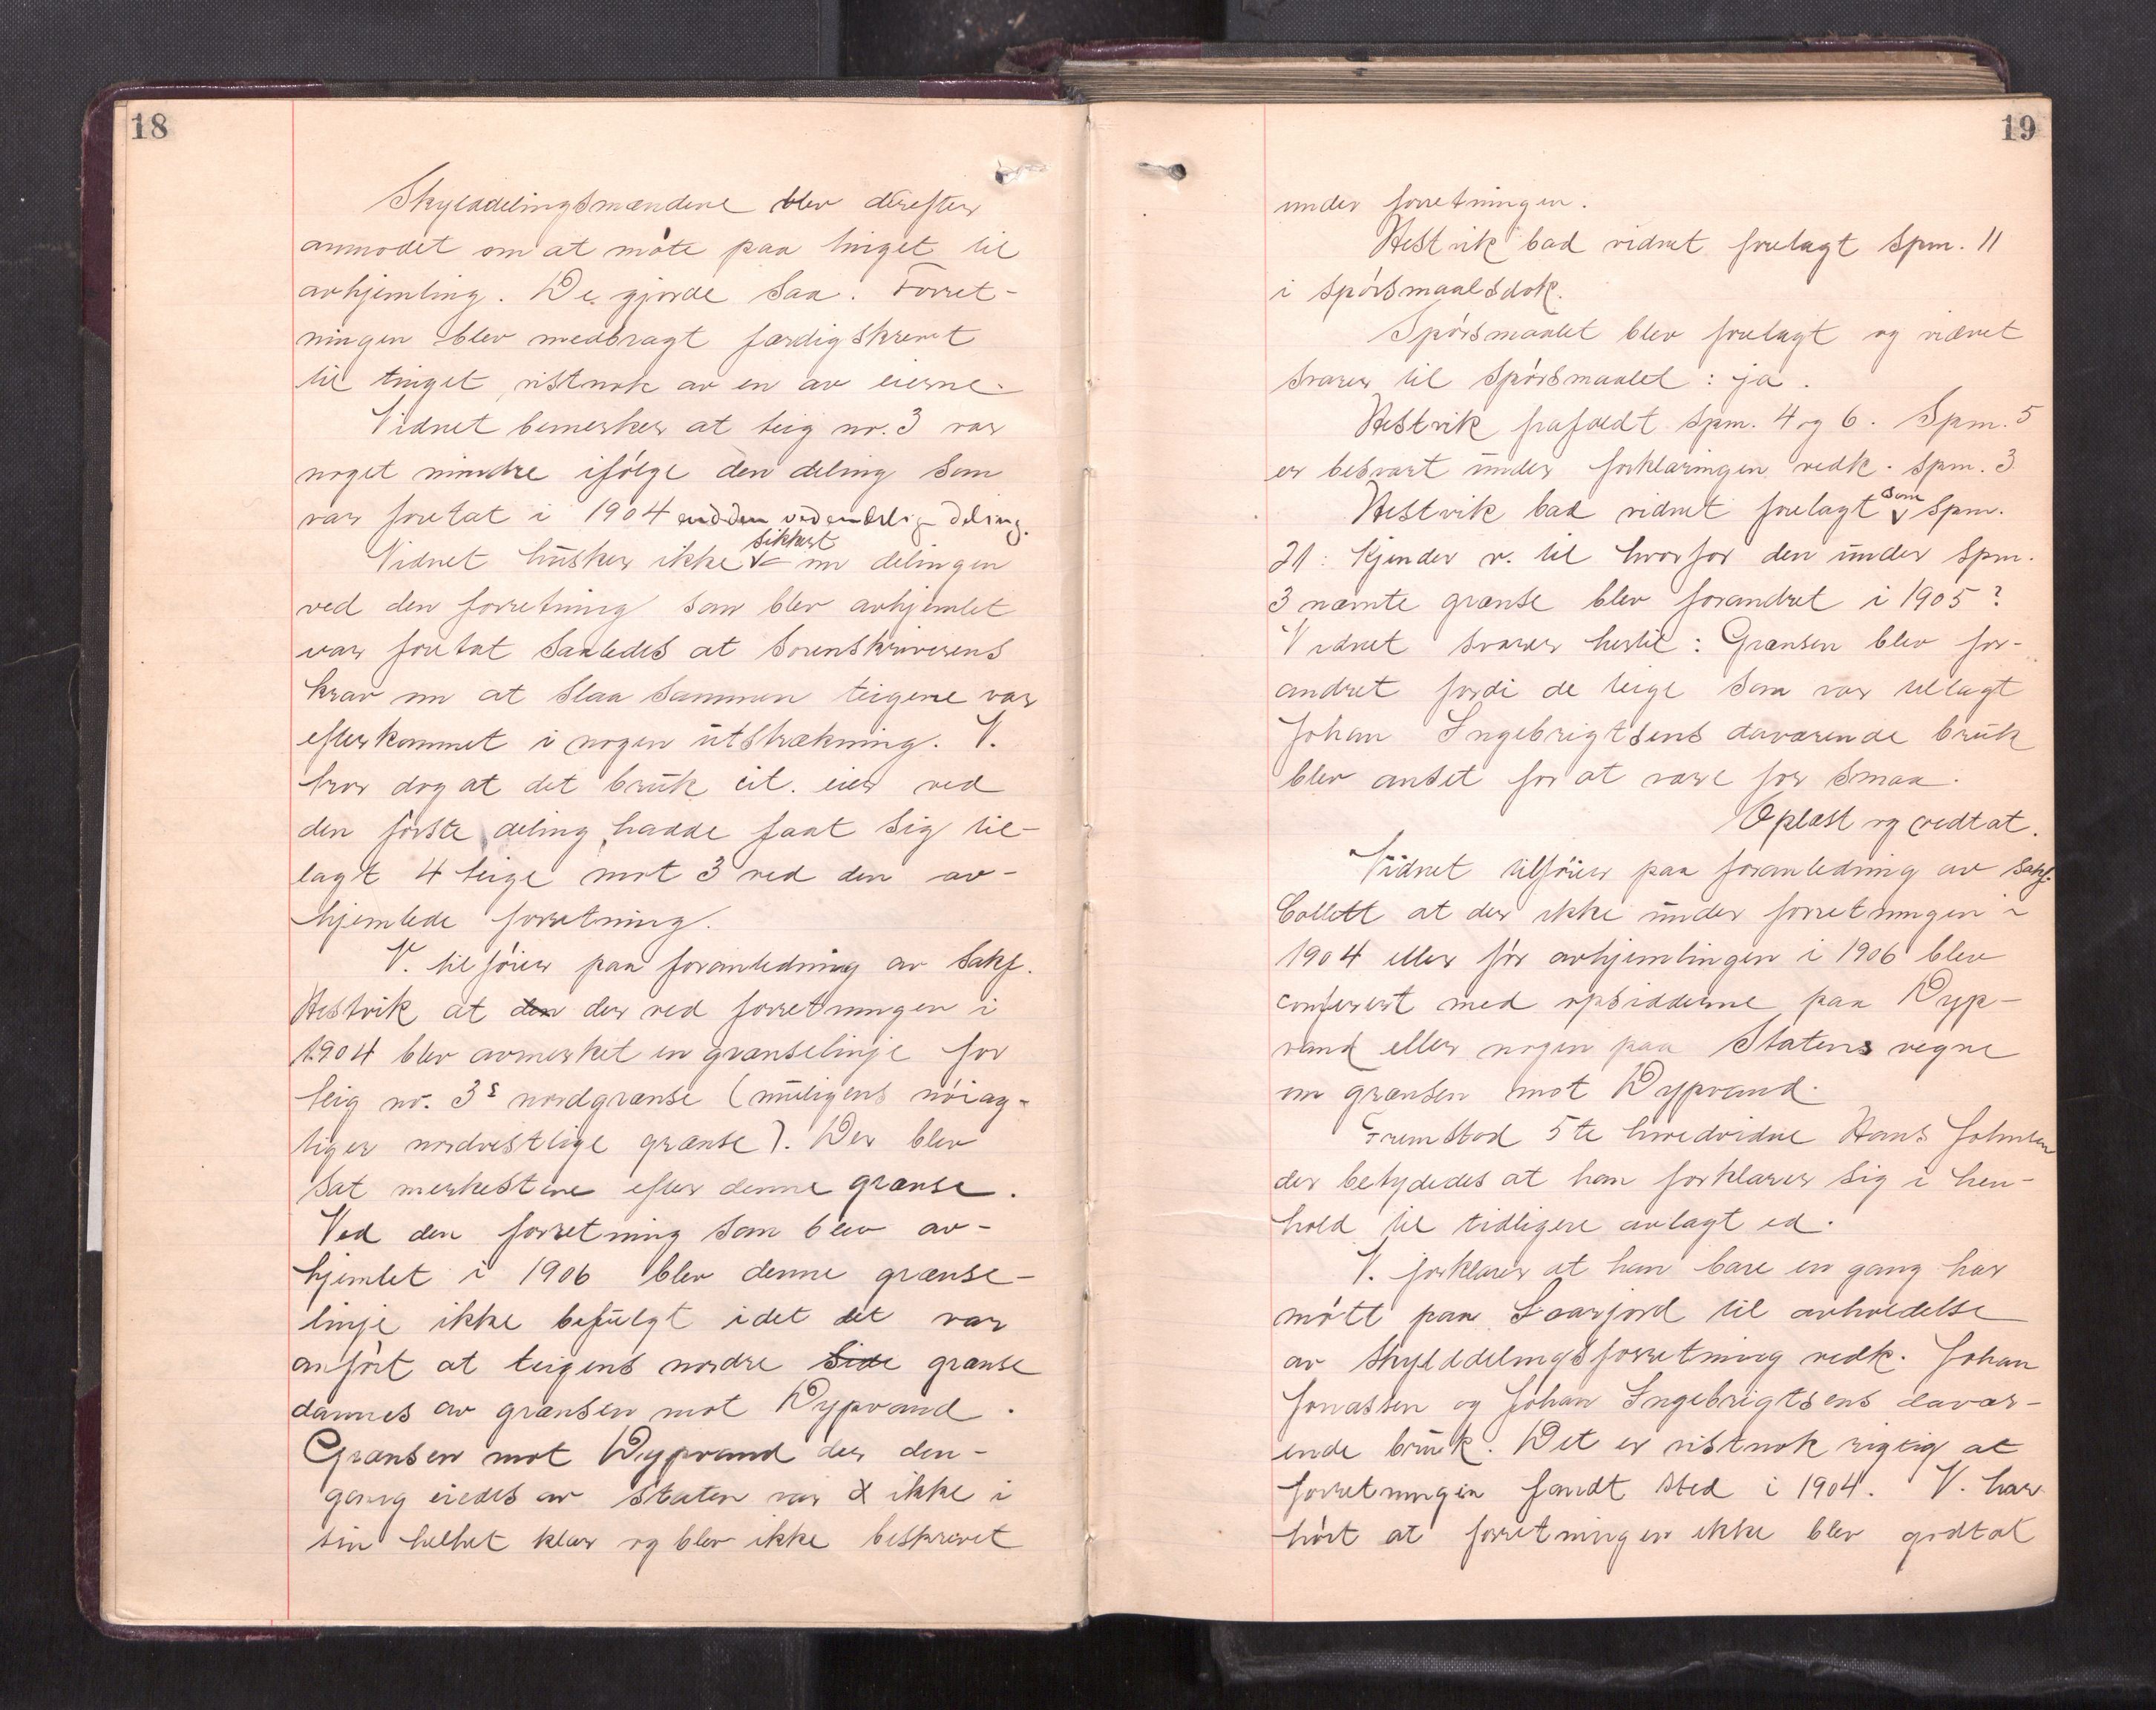 18
Skylddelingsmændene blev derefter
anmodet om at møte paa tinget til
avhjemling. De gjorde saa. Forret-
ningen blev medbragt færdigskrevet
til tinget, vistnok av en av eierne.
Vidnet bemerker at teig nr. 3 var
noget mindre ifølge den deling som
var foretat i 1904 end den endelig deling.
Vidnet husker ikke sikkert om delingen
ved den forretning som blev avhjemlet
var foretat saaledes at sorenskriverens
krav om at slaa sammen teigene var
efterkommet i nogen utstrækning. V.
tror dog at det bruk cit. eier ved
den første deling hadde faat sig til-
lagt 4 teige mot 3 ved den av-
hjemlede forretning.
V. tilføier paa foranledning av sakf.
Hestvik at den der ved forretningen i
1904 blev avmerket en grænselinje for
teig nr. 3s nordgrænse (muligens nøiag-
tiger nordvestlige grænse). Der blev
sat merkestene efter denne grænse.
Ved den forretning som blev av-
hjemlet i 1906 blev denne grænse-
linje ikke befulgt idet det var
anført at teigens nordre side grænse
dannes av grænsen mot Dypvand.
Grænsen mot Dypvand der den-
gang eiedes av staten var ikke i
sin helhet klar og blev ikke beskrevet
19
under forretningen.
Hestvik bad vidnet forelagt spm. 11
i spørsmaalsdok.
Spørsmaalet blev forelagt og vidnet
svarer til spørsmaalet: ja.
Hestvik frafaldt spm. 4 og 6. Spm. 5
er besvart under forklaringen vedk. spm. 3
Hestvik bad vidnet forelagt som spm.
21: Kjender v. til hvorfor den under spm.
3 nævnte grænse blev forandret i 1905?
Vidnet svarer hertil: Grænsen blev for-
andret fordi de teige som var tillagt
Johan Ingebrigtsens daværende bruk
blev anset for at være for smaa.
Oplæst og vedtat.
Vidnet tilføier paa foranledning av sakf.
Collett at der ikke under forretningen i
1904 eller før avhjemlingen i 1906 blev
conferert med opsidderne paa Dyp-
vand eller nogen paa Statens vegne
om grænsen mot Dypvand.
Fremstod 5te hovedvidne Hans Johnsen
der betydedes at han forklarer sig i hen-
hold til tidligere avlagt ed.
V. forklarer at han bare en gang har
møtt paa Saarfjord til avholdelse
av skylddelingsforretning vedk. Johan
Jonassen og Johan Ingebrigtsens davær-
ende bruk. Det er vistnok rigtig at
forretningen fandt sted i 1904. V. har
hørt at forretningen ikke blev godtat